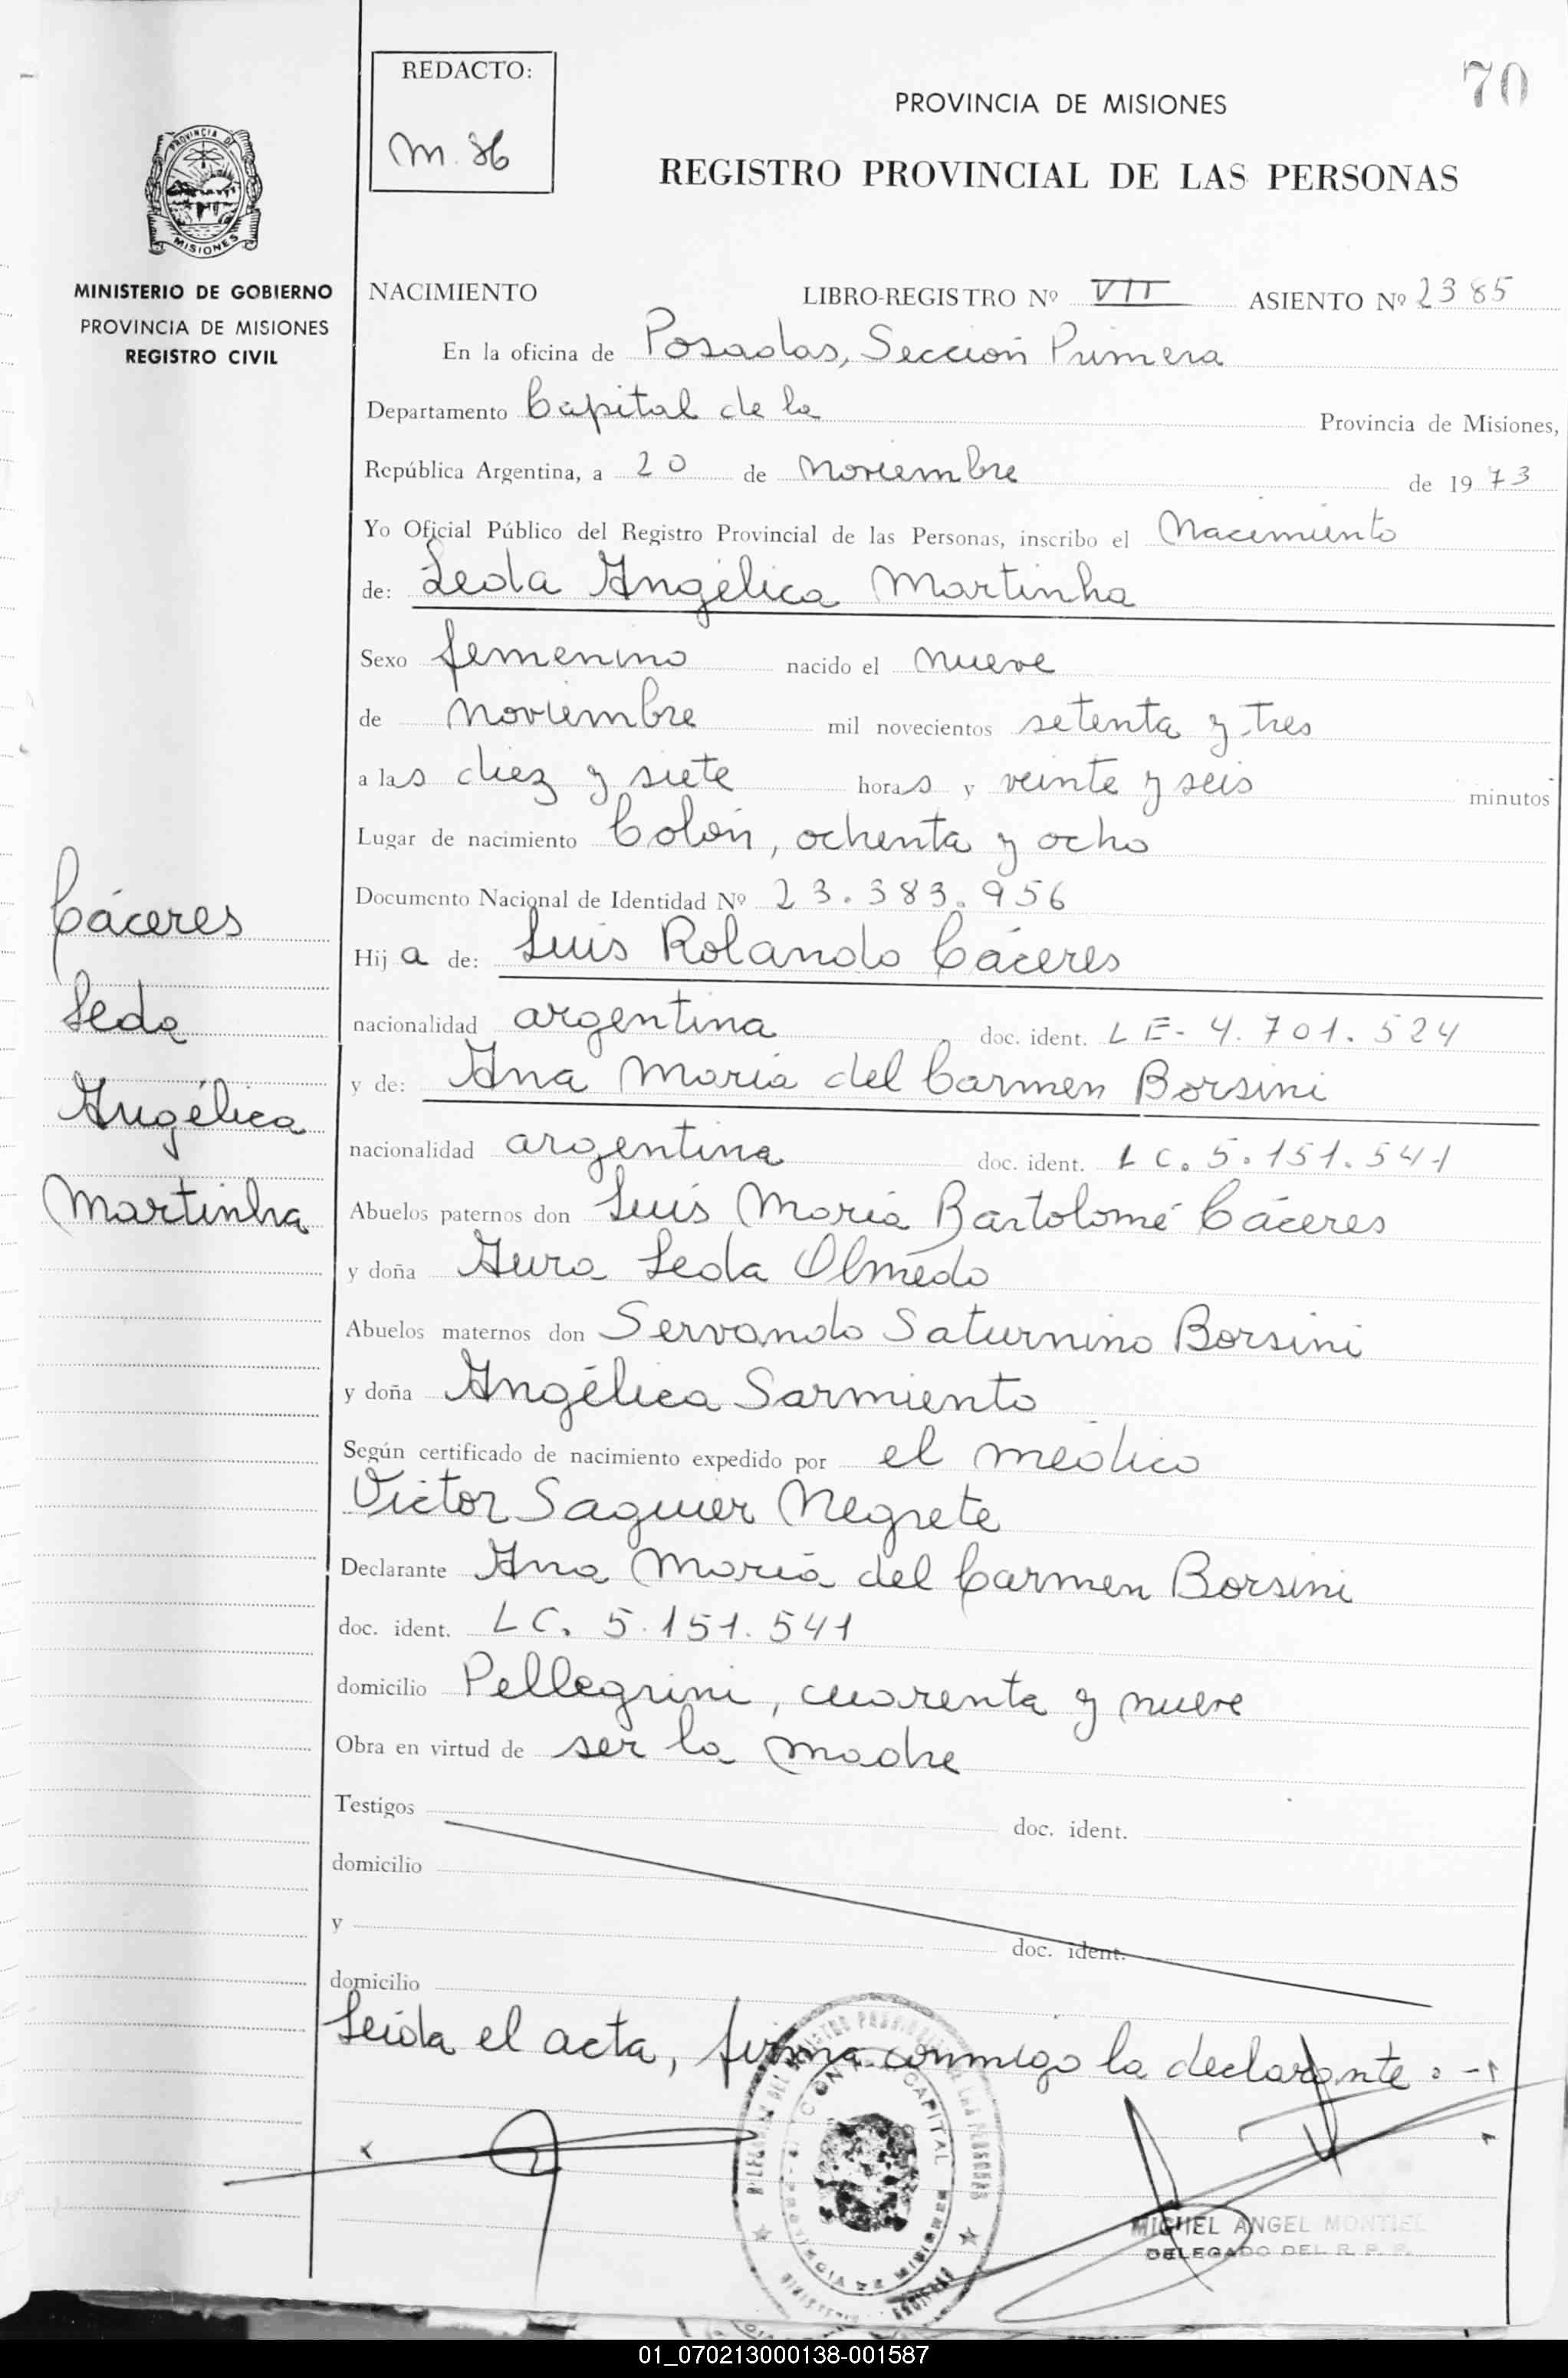 70
REDACTO:
M. 86
PROVINCIA DE MISIONES
REGISTRO PROVINCIAL DE LAS PERSONAS
PROVINCIA DE
MISIONES
MINISTERIO DE GOBIERNO
PROVINCIA DE MISIONES
REGISTRO CIVIL
NACIMIENTO LIBRO-REGISTRO Nº VII ASIENTO Nº 2385
En la oficina de Posadas, Sección Primera
Departamento Capital de la Provincia de Misiones,
República Argentina, a 20 de noviembre de 1973
Yo Oficial Público del Registro Provincial de las Personas, inscribo el Nacimiento
de: Leda Angélica Martinha
Sexo femenino nacido el nueve
de noviembre mil novecientos setenta y tres
a las diez y siete horas y veinte y seis minutos
Lugar de nacimiento Colón, ochenta y ocho
Documento Nacional de Identidad Nº 23.383.956
Hija de: Luis Rolando Cáceres
nacionalidad argentina doc. ident. LE- 4.701.524
y de: Ana María del Carmen Borsini
nacionalidad argentina doc. ident. LC. 5.151.541
Abuelos paternos don Luis María Bartolomé Cáceres
y doña Aura Leda Olmedo
Abuelos maternos don Servando Saturnino Borsini
y doña Angélica Sarmiento
Según certificado de nacimiento expedido por el médico
Victor Saguier Negrete
Declarante Ana María del Carmen Borsini
doc. ident. LC. 5.151.541
domicilio Pellegrini, cuarenta y nueve
Obra en virtud de ser la madre
Testigos doc. ident.
domicilio
y doc. ident.
domicilio
Leida el acta, firma conmigo la declarante.-
Cáceres
Leda
Angélica
Martinha
MIGUEL ANGEL MONTIEL
DELEGADO DEL R. P. P.
01_070213000138-001587